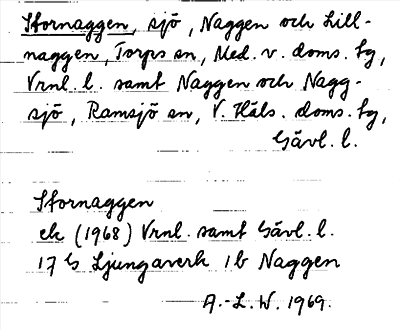 Stornaggen, sjö, Naggen och Lill-
naggen, Torps sn, Med. v. doms. tg,
Vrnl. l. samt Naggen och Nagg-
sjö, Ramsjö sn, V. Häls. doms. tg,
Gävl. l.
Stornaggen
ek (1968) Vrnl. samt Gävl. l.
17 G Ljungaverk 1b Naggen
A.-L. W. 1969.